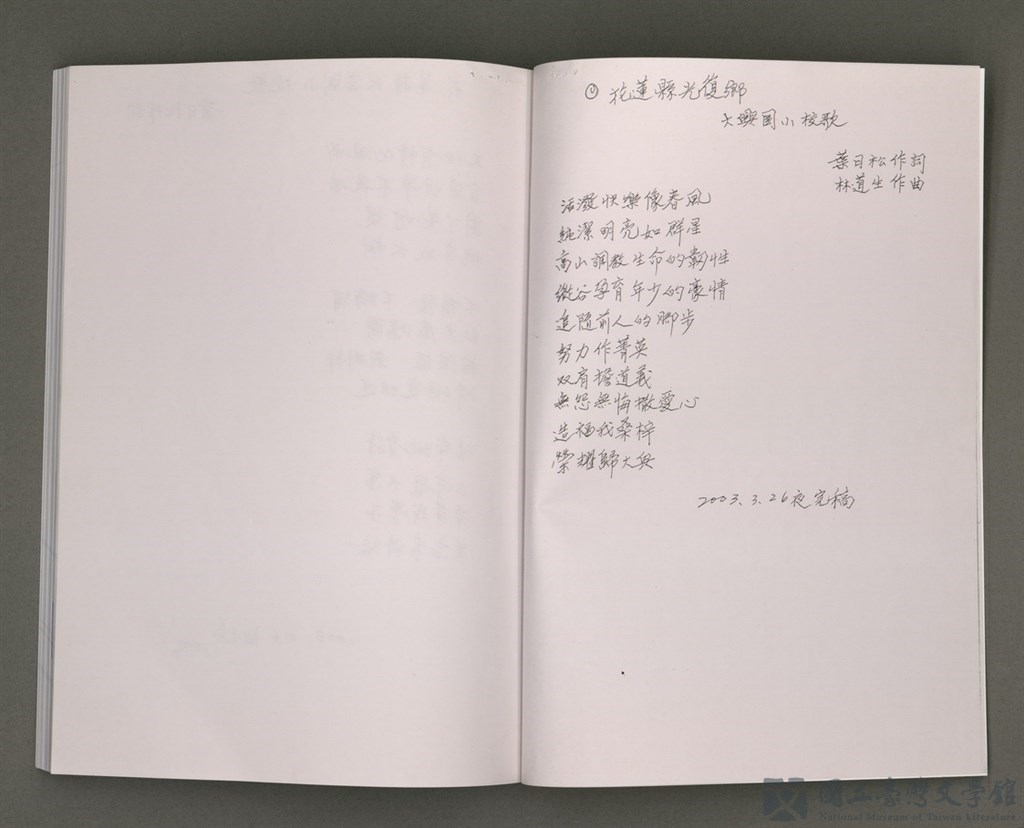 花蓮縣光復鄉
大興国小校歌
葉日松作詞
林道生作曲
活潑快樂像春風
純潔明亮如群星
高山調教生命的韌性
縱谷孕育年少的豪情
追隨前人的脚步
努力作菁英
双肩擔道義
無怨無悔撒愛心
造福我桑梓
榮耀歸大興
2003.3.26夜完稿
國立臺灣文學館
National Museum of Taiwan Literature